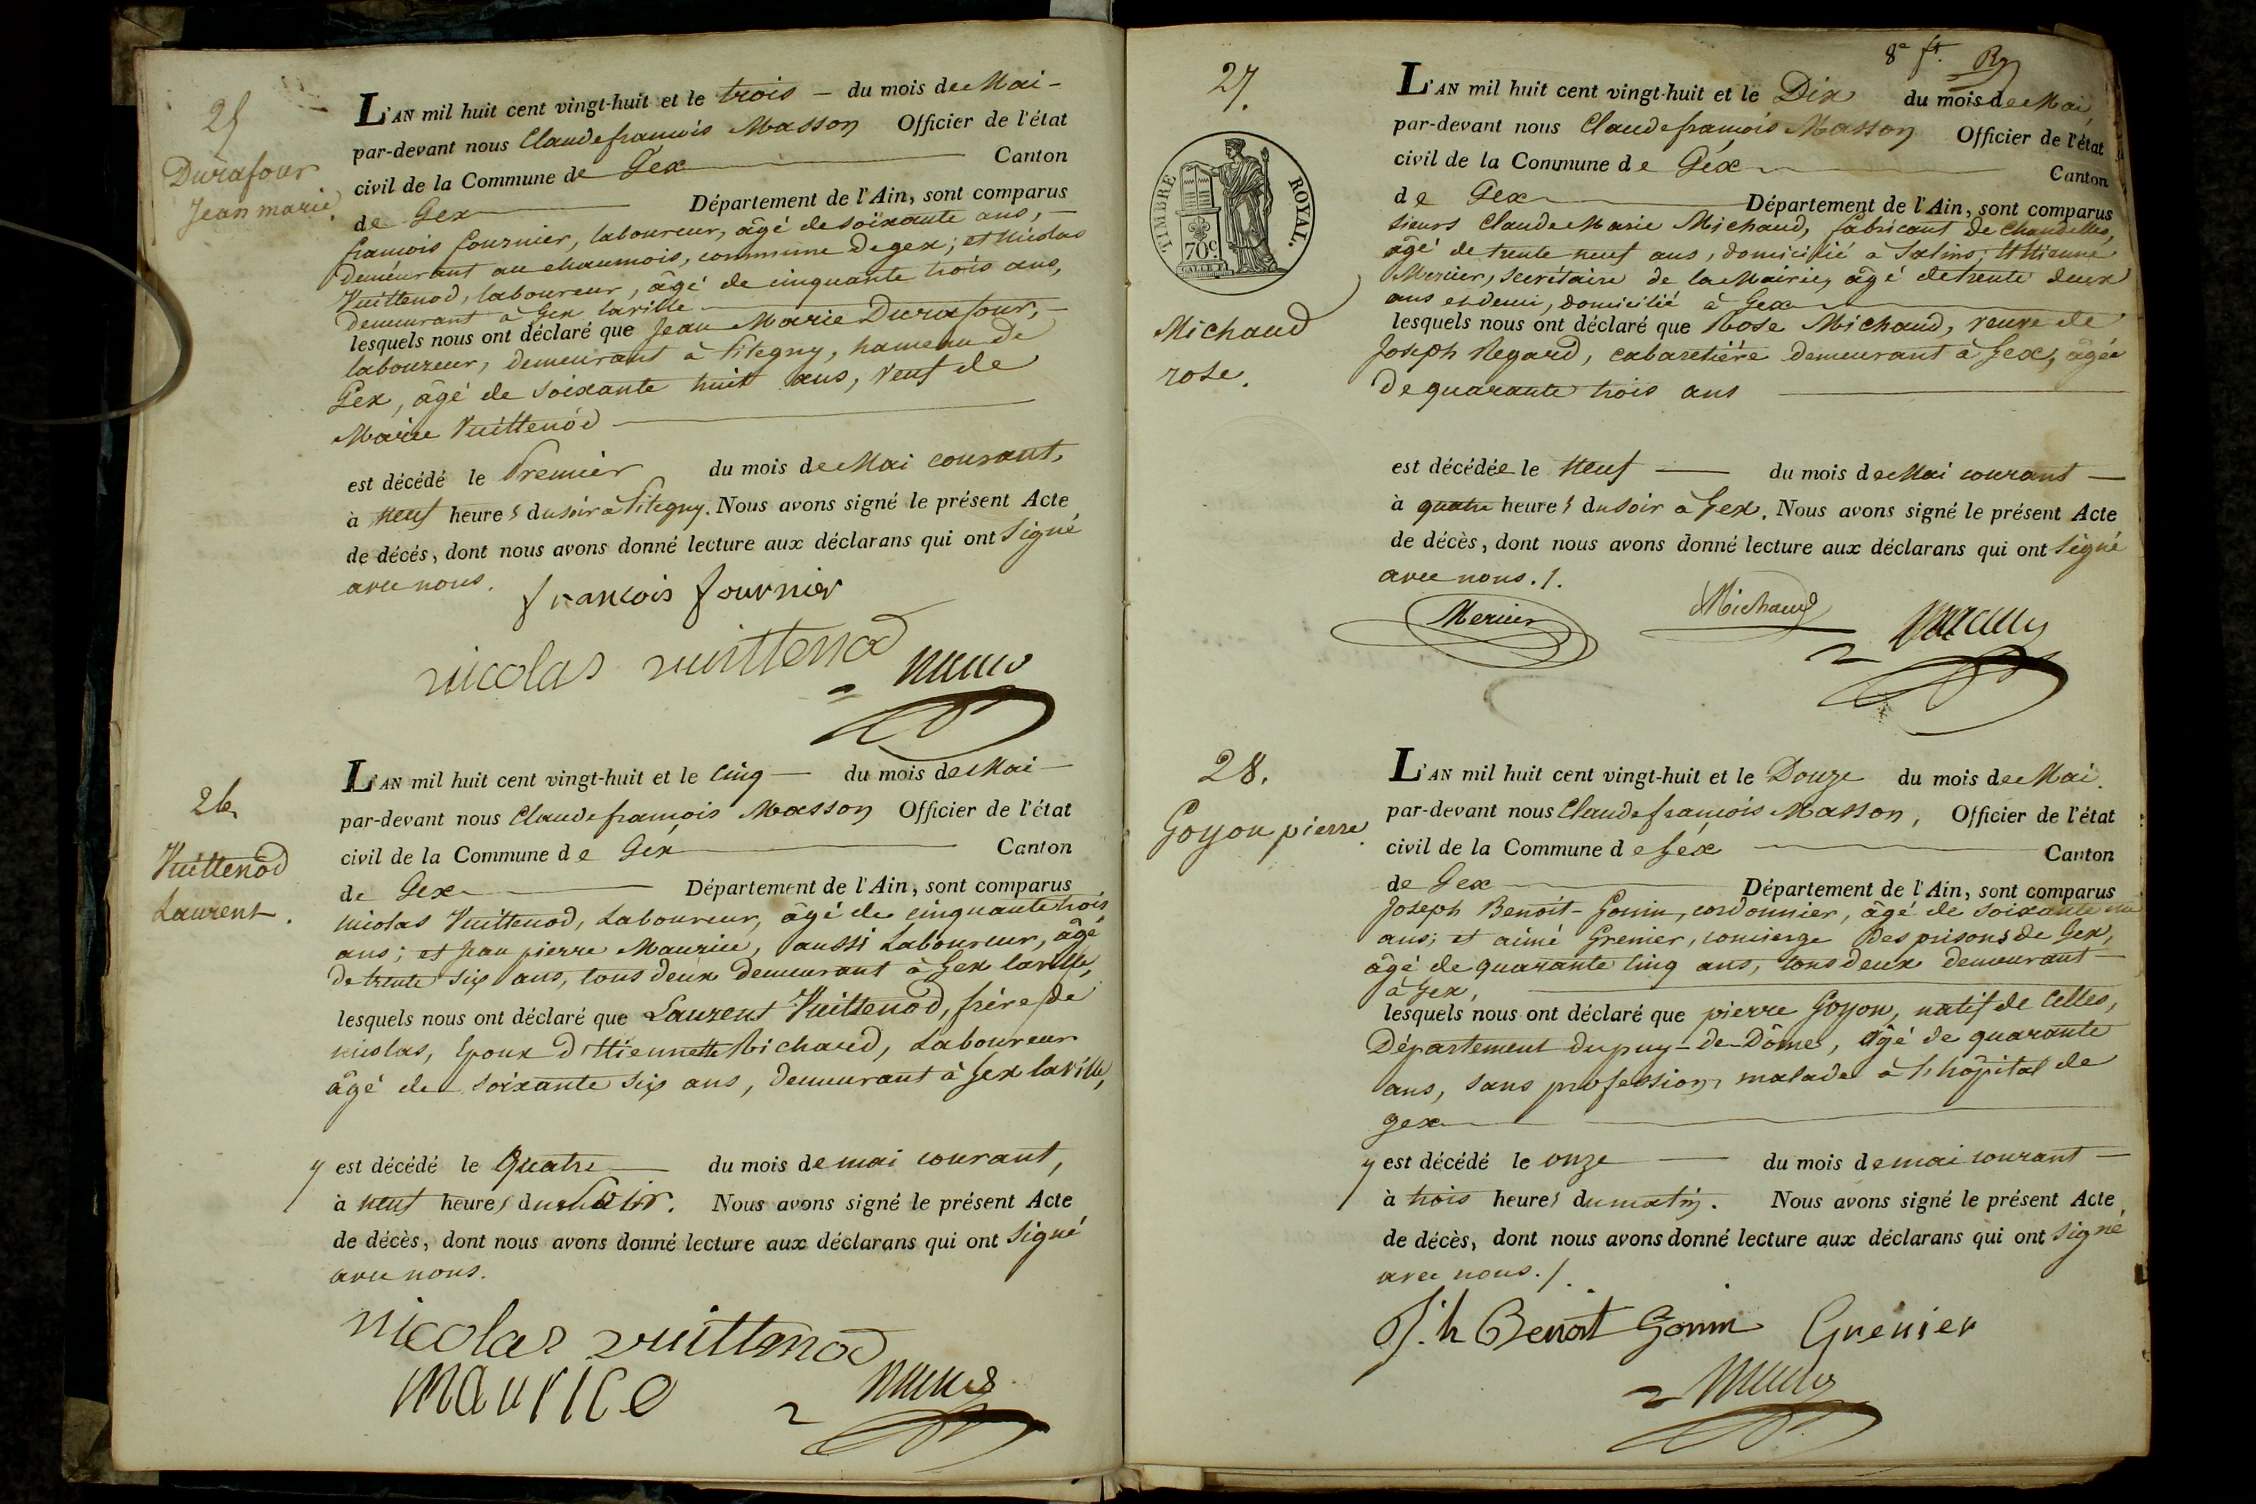 25
Durafour
Jean marie.
L'AN mil huit cent vingt-huit et le trois — du mois de Mai —
par-devant nous Claude francois Masson Officier de l'état
civil de la Commune de Gex Canton
de Gex Département de l'Ain, sont comparus
francois fournier, laboureur, âgé de soixante ans,
demeurant au chaumois, commune de gex; et Nicolas
Vuittenod, laboureur, âgé de cinquante trois ans,
demeurant à Gex laville
lesquels nous ont déclaré que Jean Marie Durafour,
laboureur, demeurant à Pitegny, hameau de
Gex, âgé de soixante huit ans, veuf de
Marie Vuittenod
est décédé le Premier du mois de Mai courant,
à neuf heures du soir à Pitegny. Nous avons signé le présent Acte
de décés, dont nous avons donné lecture aux déclarans qui ont signé
avec nous.
francois fournier
nicolas vuittenod
26.
Vuittenod
Laurent.
L'AN mil huit cent vingt-huit et le cinq — du mois de Mai —
par-devant nous Claude francois Masson Officier de l'état
civil de la Commune de Gex Canton
de Gex Département de l'Ain, sont comparus
Nicolas Vuittenod, Laboureur, âgé de cinquante trois
ans; et Jean pierre Maurice, aussi Laboureur, âgé
de trente six ans, tous deux demeurant à Gex laville,
lesquels nous ont déclaré que Laurent Vuittenod, frère de
nicolas, Epoux d'Etiennette Richard, Laboureur
âgé de soixante six ans, demeurant à Gex laville,
y est décédé le Quatre du mois de mai courant,
à neuf heures du soir. Nous avons signé le présent Acte
de décès, dont nous avons donné lecture aux déclarans qui ont signé
avec nous.
nicolas vuittenod
maurice
8e ft.
27.
TIMBRE ROYAL.
70 c.
Michaud
rose.
L'AN mil huit cent vingt-huit et le Dix du mois de Mai,
par-devant nous Claude francois Masson Officier de l'état
civil de la Commune de Géx Canton
de Gex Département de l'Ain, sont comparus
sieurs Claude Marie Michaud, fabricant de chandelles,
âgé de trente neuf ans, domicilié à Salins; Ettienne
Mercier, secrétaire de la Mairie, âgé de trente deux
ans et demi, domicilié à Gex
lesquels nous ont déclaré que Rose Michaud, veuve de
Joseph Regard, cabaretière demeurant à Gex, âgée
de quarante trois ans
est décédée le neuf du mois de Mai courant —
à quatre heures du soir à Gex. Nous avons signé le présent Acte
de décès, dont nous avons donné lecture aux déclarans qui ont signé
avec nous./.
Mercier Michaud
28.
Goyon pierre.
L'AN mil huit cent vingt-huit et le Douze du mois de Mai.
par-devant nous Claude francois Masson, Officier de l'état
civil de la Commune de Géx Canton
de Gex Département de l'Ain, sont comparus
Joseph Benoit-Gonin, cordonnier, âgé de soixante un
ans; et aimé Grenier, concierge des prisons de Gex,
âgé de quarante cinq ans, tous deux demeurant
à Gex,
lesquels nous ont déclaré que pierre Goyon, natif de Celles,
Département du puy-de-Dôme, âgé de quarante
ans, sans profession, malade à l'hôpital de
gex
y est décédé le onze du mois de mai courant —
à trois heures du matin. Nous avons signé le présent Acte
de décès, dont nous avons donné lecture aux déclarans qui ont signé
avec nous./.
J.h Benoit Gonin Grénier